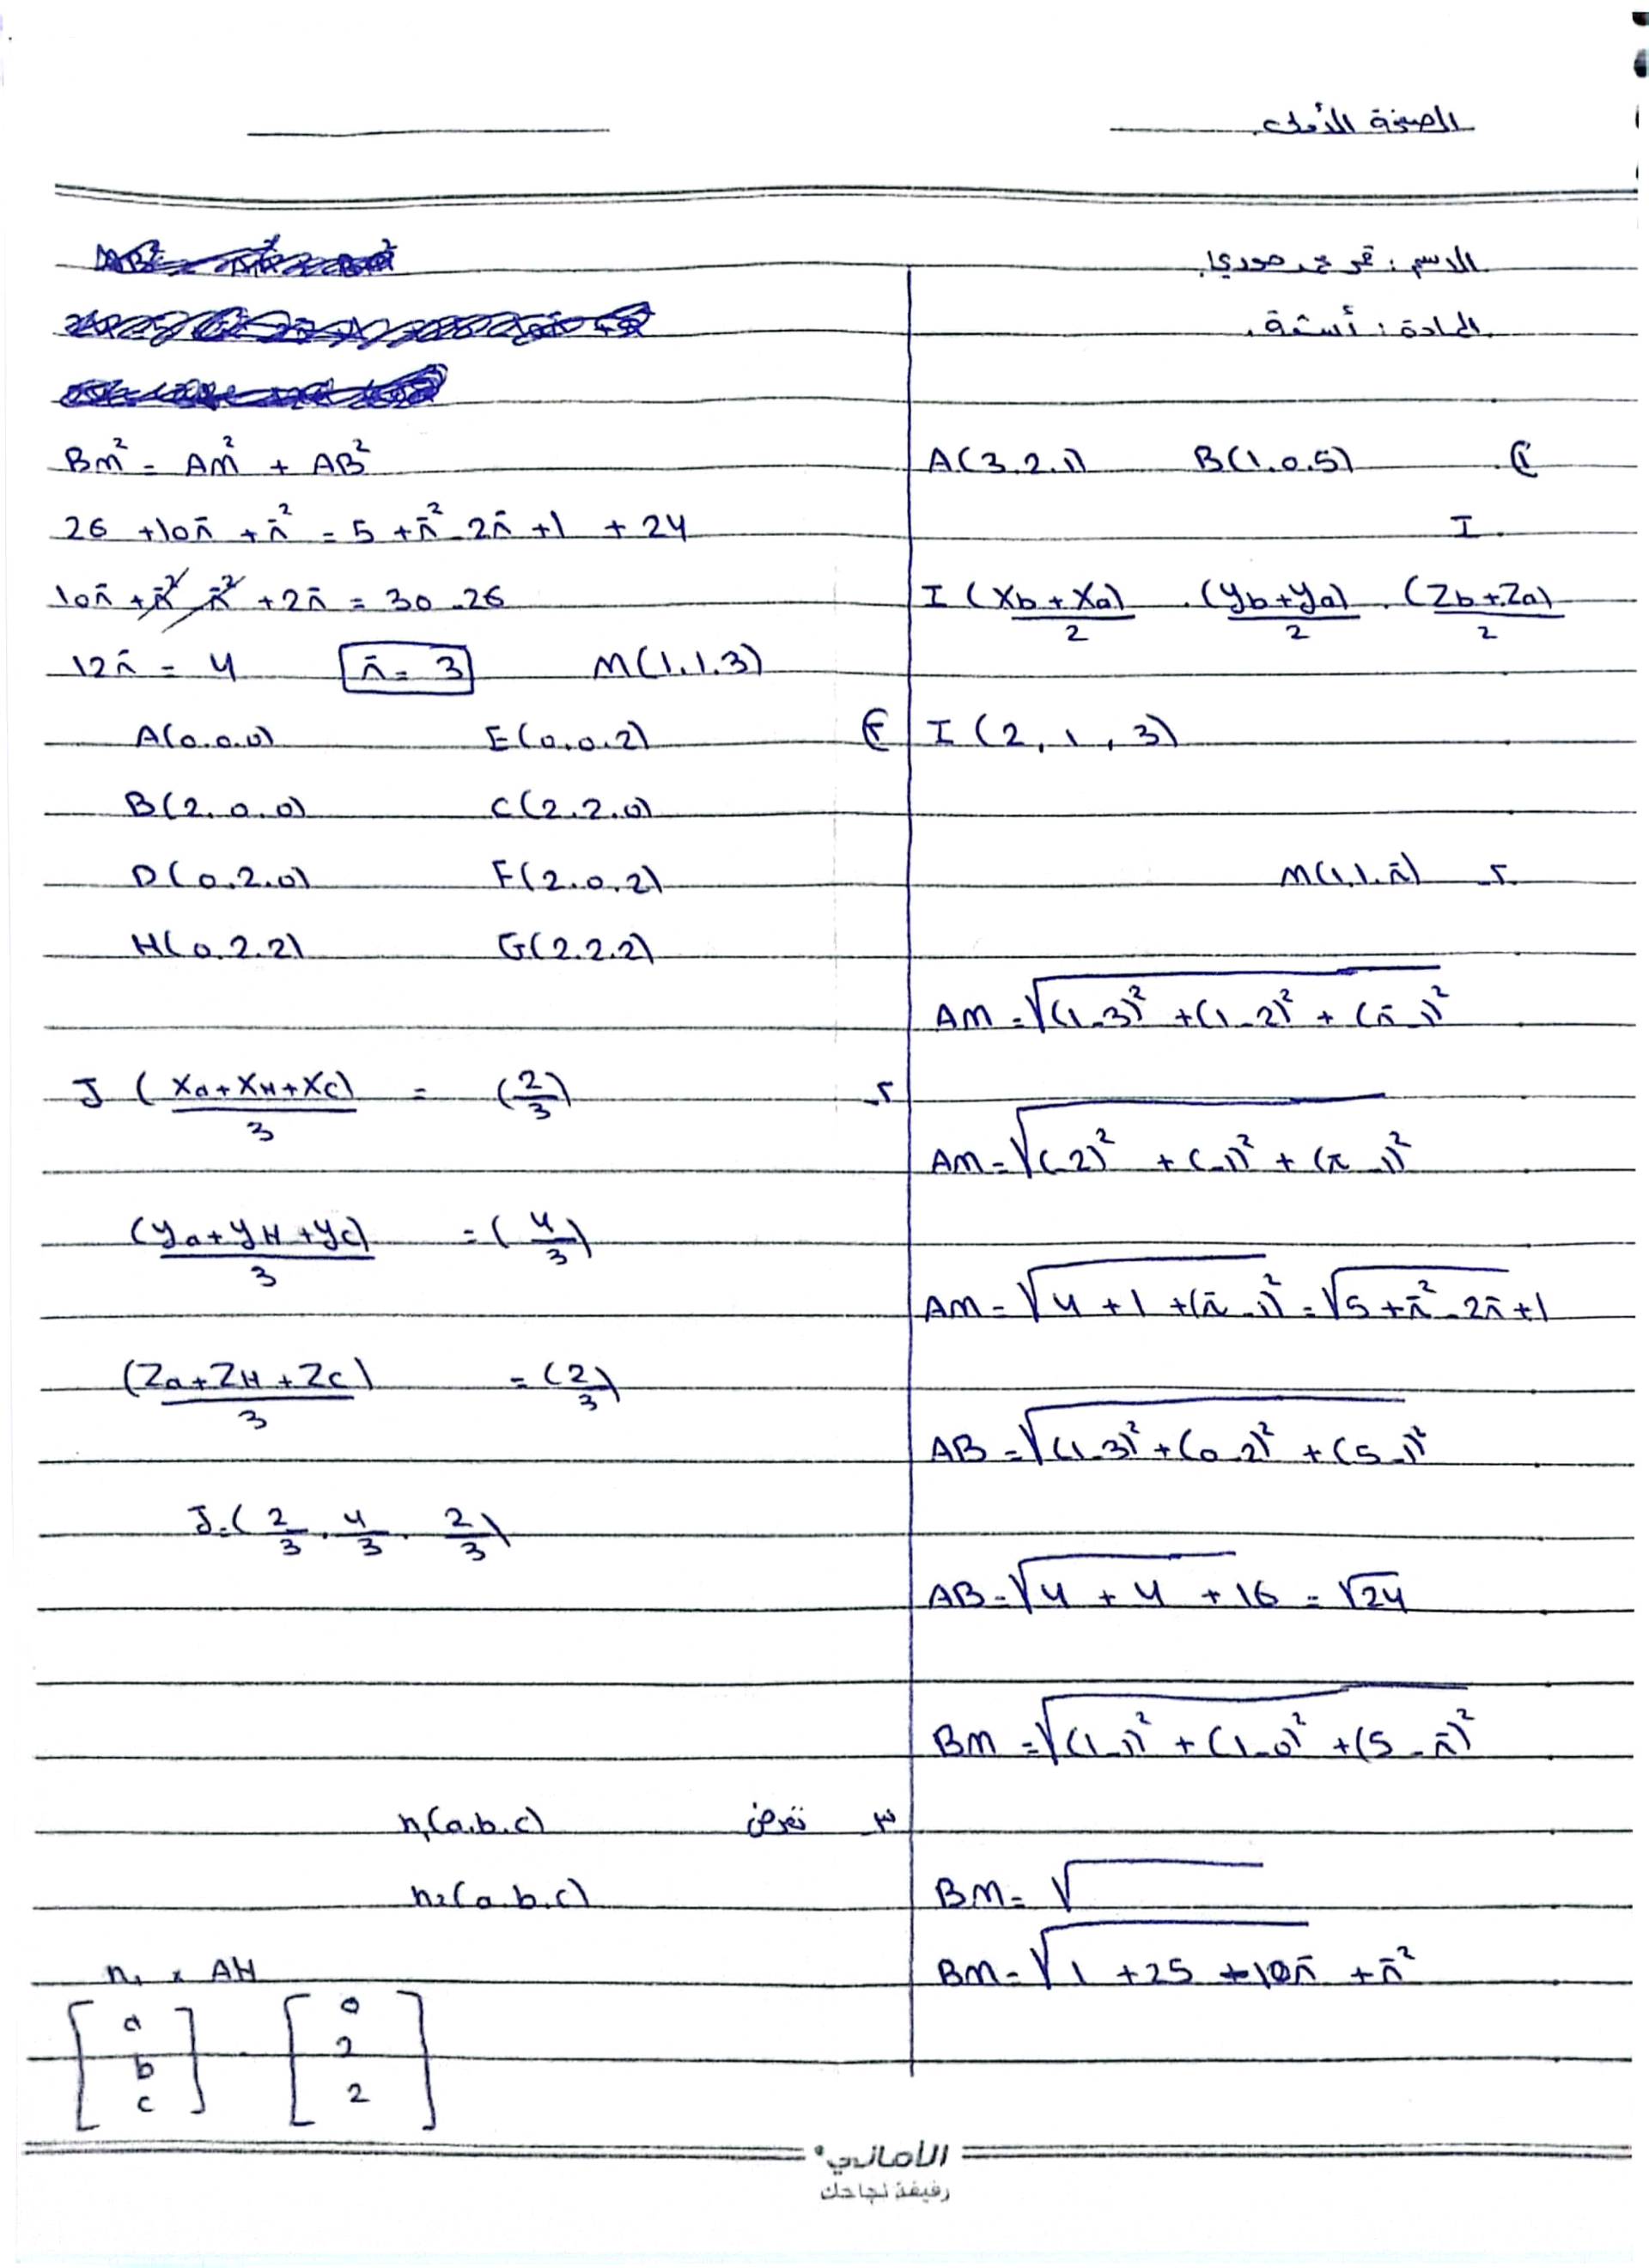 الصفحة الأولى
الاسم :
المادة : أتمتة.
A(3.2.1) B(1.0.5) ①
I
I (xb + xa)/2 . (yb + ya)/2 . (zb + za)/2
I (2, 1, 3)
M(1.1.λ) 2-
AM = √(1-3)² + (1-2)² + (λ-1)²
AM = √(-2)² + (-1)² + (λ-1)²
AM = √4 + 1 + (λ-1)² = √5 + λ² - 2λ + 1
AB = √(1-3)² + (0-2)² + (5-1)²
AB = √4 + 4 + 16 = √24
BM = √(1-1)² + (1-0)² + (5-λ)²
BM = √
BM = √1 + 25 + 10λ + λ²
BM² = AM² + AB²
26 + 10λ + λ² = 5 + λ² - 2λ + 1 + 24
10λ + λ² - λ² + 2λ = 30 - 26
12λ = 4 λ = 3 M(1.1.3)
A(0.0.0) E(0.0.2) ②
B(2.0.0) C(2.2.0)
D(0.2.0) F(2.0.2)
H(0.2.2) G(2.2.2)
J (xa + xH + xc)/3 = (2/3) 2-
(ya + yH + yc)/3 = (4/3)
(Za + ZH + Zc)/3 = (2/3)
J = (2/3 . 4/3 . 2/3)
3 نفرض n₁(a.b.c)
n₂(a.b.c)
n₁ × AH
[a b c] . [0 2 2]
الأماني
رفيقة نجاحك